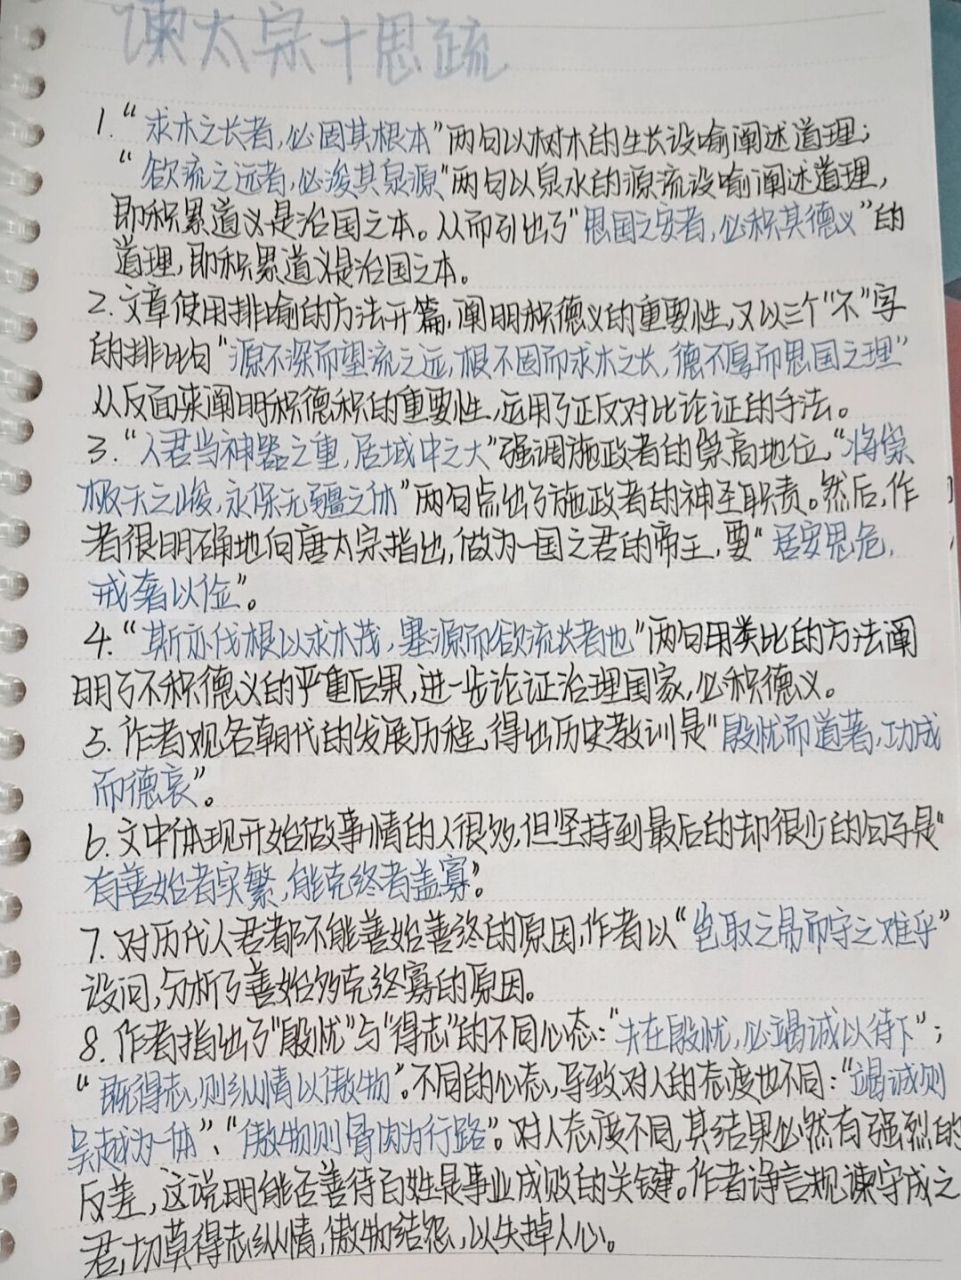 谏太宗十思疏
1.“求木之长者,必固其根本”两句以树木的生长设喻阐述道理;
“欲流之远者,必浚其泉源”两句以泉水的源流设喻阐述道理,
即积累道义是治国之本。从而引出了“思国之安者,必积其德义”的
道理,即积累道义是治国之本。
2.文章使用排喻的方法开篇,阐明积德义的重要性,又以三个“不”字
的排比句“源不深而望流之远,根不固而求木之长,德不厚而思国之理”
从反面来阐明积德积的重要性,运用了正反对比论证的手法。
3.“人君当神器之重,居域中之大”强调施政者的崇高地位,“将崇
极天之峻,永保无疆之休”两句点出了施政者的神圣职责。然后,作
者很明确地向唐太宗指出,做为一国之君的帝王,要“居安思危,
戒奢以俭”。
4.“斯亦伐根以求木茂,塞源而欲流长者也”两句用类比的方法阐
明了不积德义的严重后果,进一步论证治理国家,必积德义。
5.作者观各朝代的发展历程,得出历史教训是“殷忧而道著,功成
而德衰”。
6.文中体现开始做事情的人很多,但坚持到最后的却很少的句子是“
有善始者实繁,能克终者盖寡”。
7.对历代人君都不能善始善终的原因,作者以“岂取之易而守之难乎”
设问,分析了善始多克终寡的原因。
8.作者指出了“殷忧”与“得志”的不同心态:“夫在殷忧,必竭诚以待下”;
“既得志,则纵情以傲物”。不同的心态,导致对人的态度也不同:“竭诚则
吴越为一体”、“傲物则骨肉为行路”。对人态度不同,其结果必然有强烈的
反差,这说明能否善待百姓是事业成败的关键。作者诤言规谏守成之
君,切莫得志纵情,傲物结怨,以失掉人心。